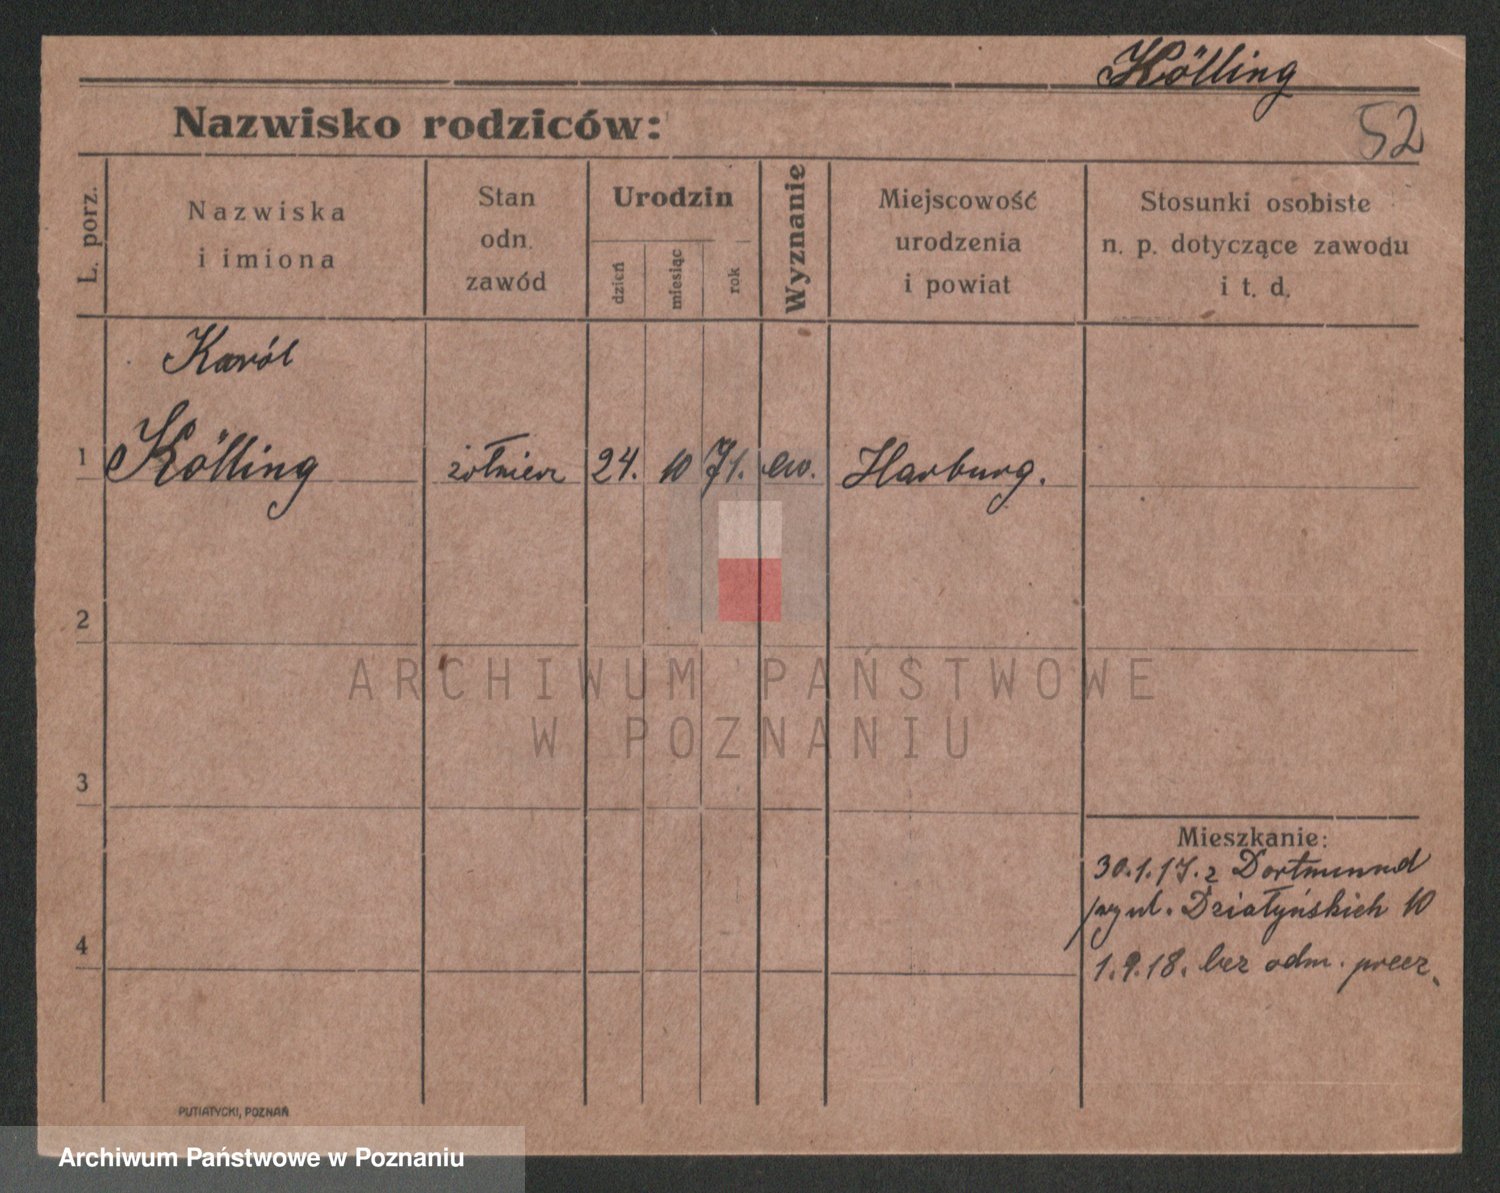 Kölling
52
Nazwisko rodziców:
L. porz.
Nazwiska
i imiona
Stan
odn.
zawód
Urodzin
dzień
miesiąc
rok
Wyznanie
Miejscowość
urodzenia
i powiat
Stosunki osobiste
n. p. dotyczące zawodu
i t. d.
Karól
1 Kölling żołnierz 24. 10 71. ew. Harburg.
2
ARCHIWUM PAŃSTWOWE
W POZNANIU
3
Mieszkanie:
30.1.17. z Dortmund
ul. Działyńskich 10
4
1.9.18. bez odm.
PUTIATYCKI, POZNAŃ
Archiwum Państwowe w Poznaniu